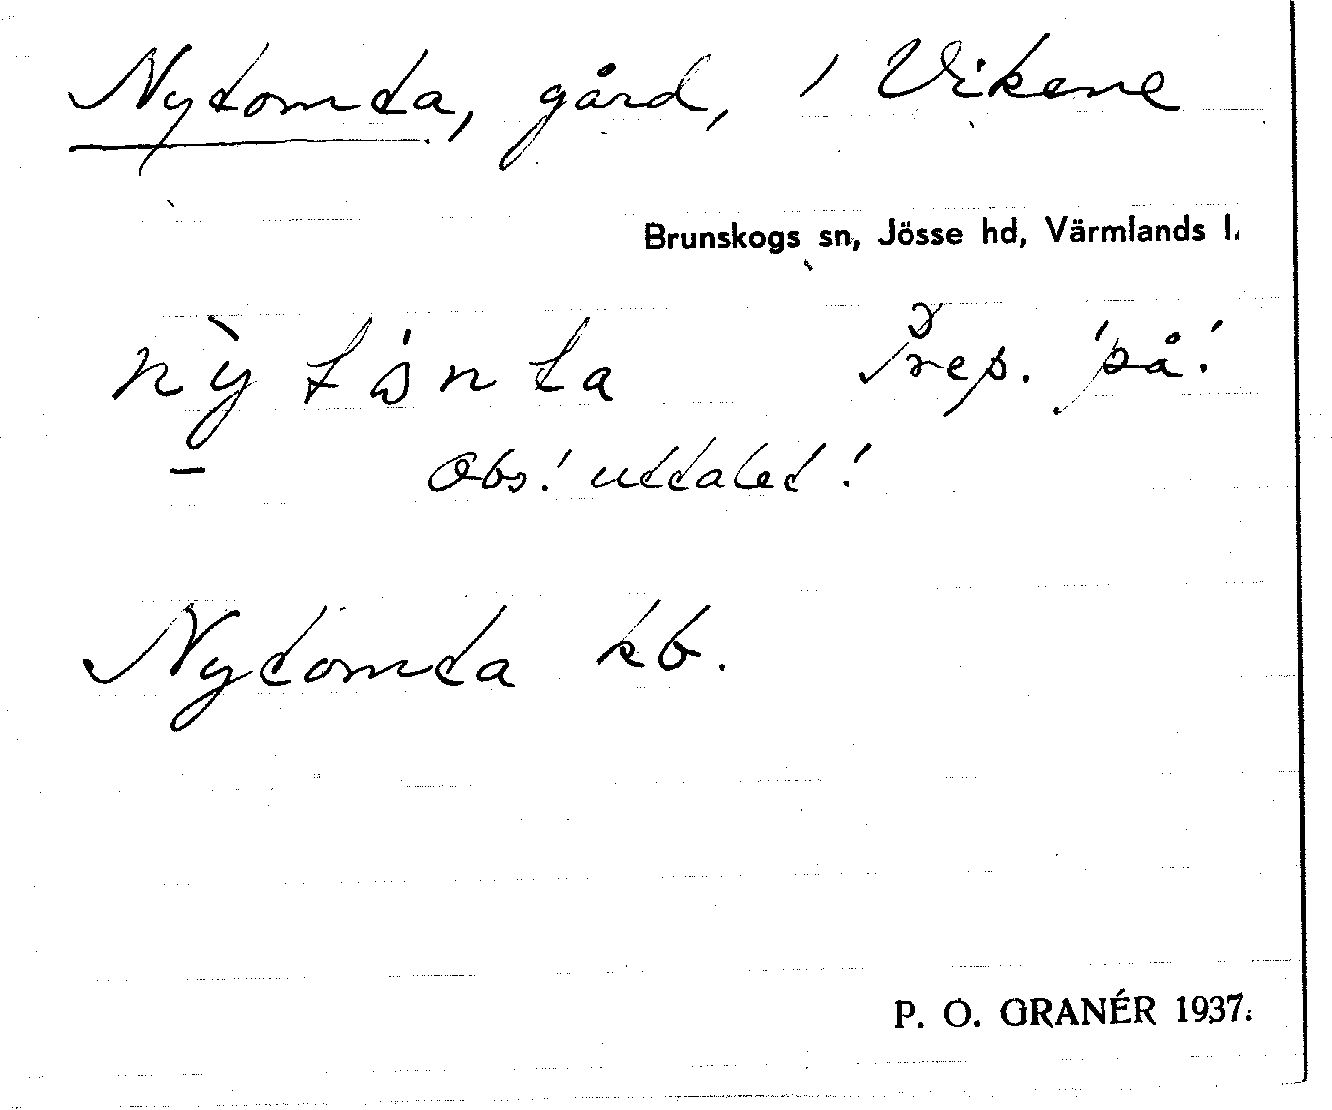 Nytomta, gård, i Vikene
Brunskogs sn, Jösse hd, Värmlands l.
Prep. 'på'.
Obs! uttalet!
Nytomta kb.
P. O. GRANÉR 1937.